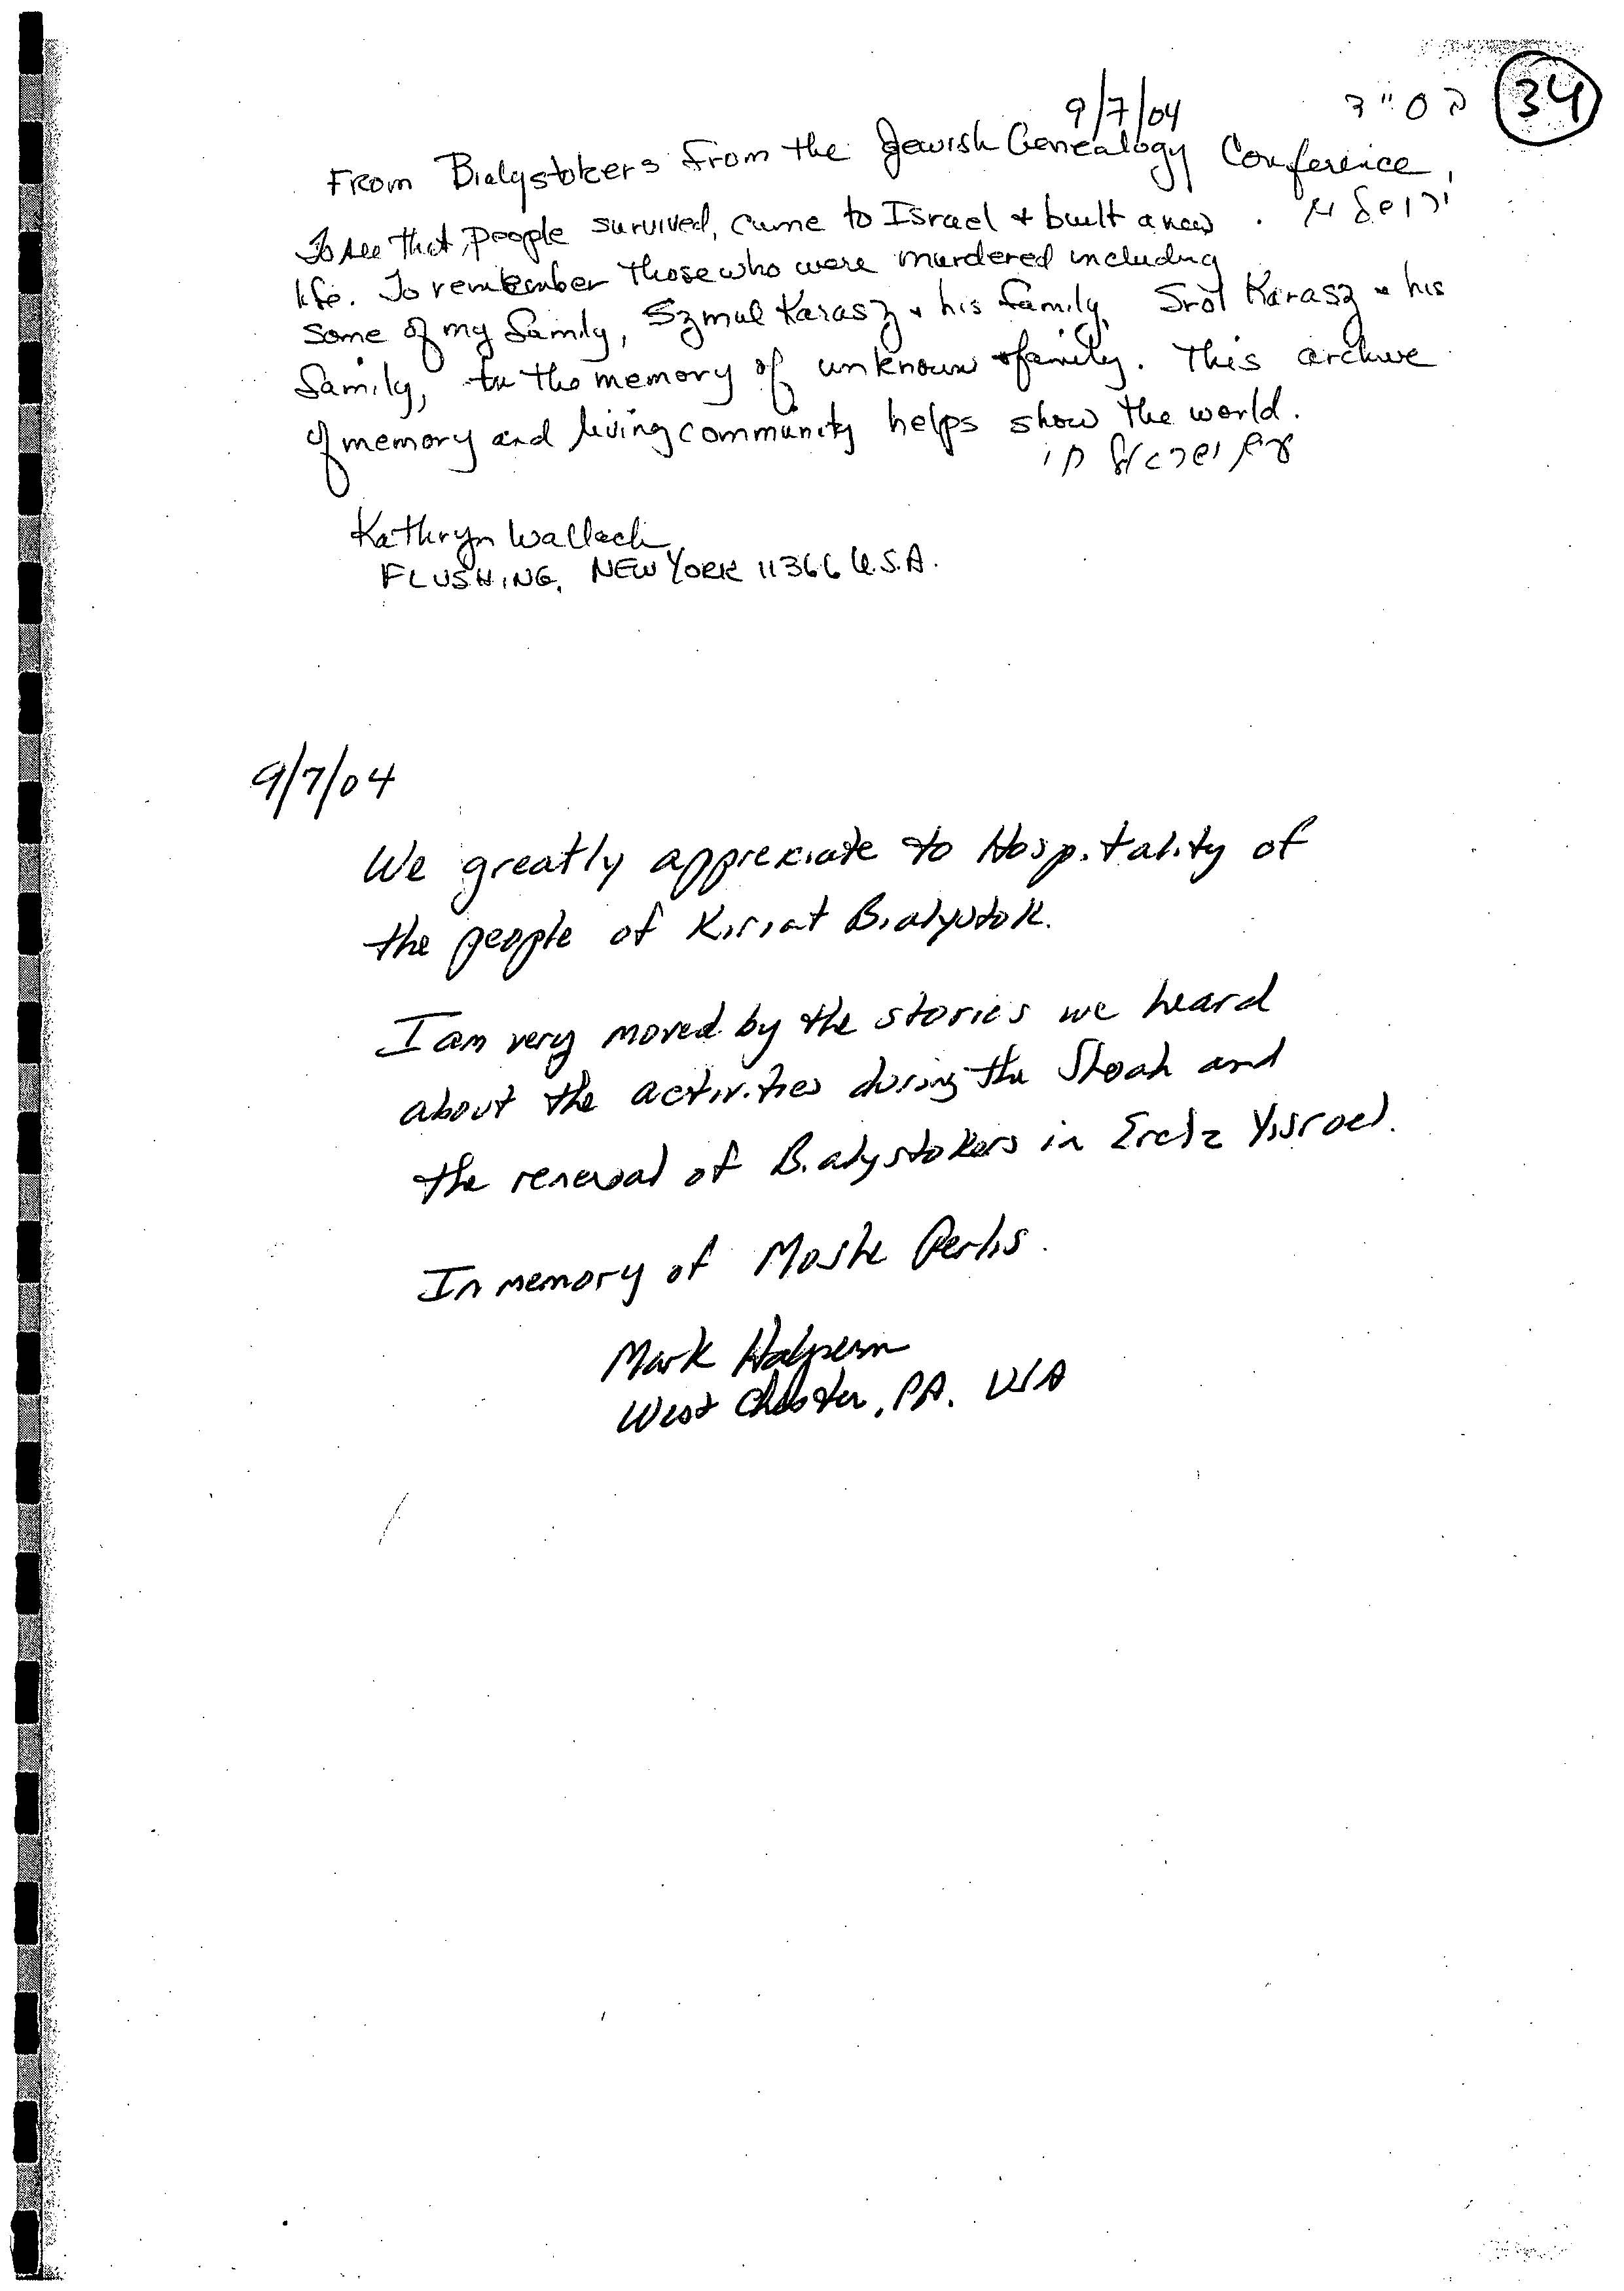 34
בס"ד
9/7/04
From Bialystokers from the Jewish Genealogy Conference,
ירושלים
To see that people survived, came to Israel + built a new
life. To remember those who were murdered including
some of my family, Szmul Karasz + his family, Srol Karasz + his
family, to the memory of unknown family. This archive
of memory and living community helps show the world.
עם ישראל חי
Kathryn Wallach
FLUSHING, NEW YORK 11366 U.S.A.
9/7/04
We greatly appreciate to Hospitality of
the people of Kiriat Bialystok.
I am very moved by the stories we heard
about the activities during the Shoah and
the renewal of Bialystokers in Eretz Yisroel.
In memory of Moshe Perlis.
Mark Halpern
West Chester, PA. USA